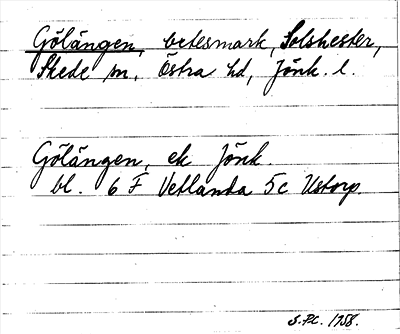 Gölängen, betesmark, Solshester,
Skede sn, Östra hd, Jönk. l.
Gölängen, ek Jönk.
bl. 6 F Vetlanda 5c Ustorp.
1958.